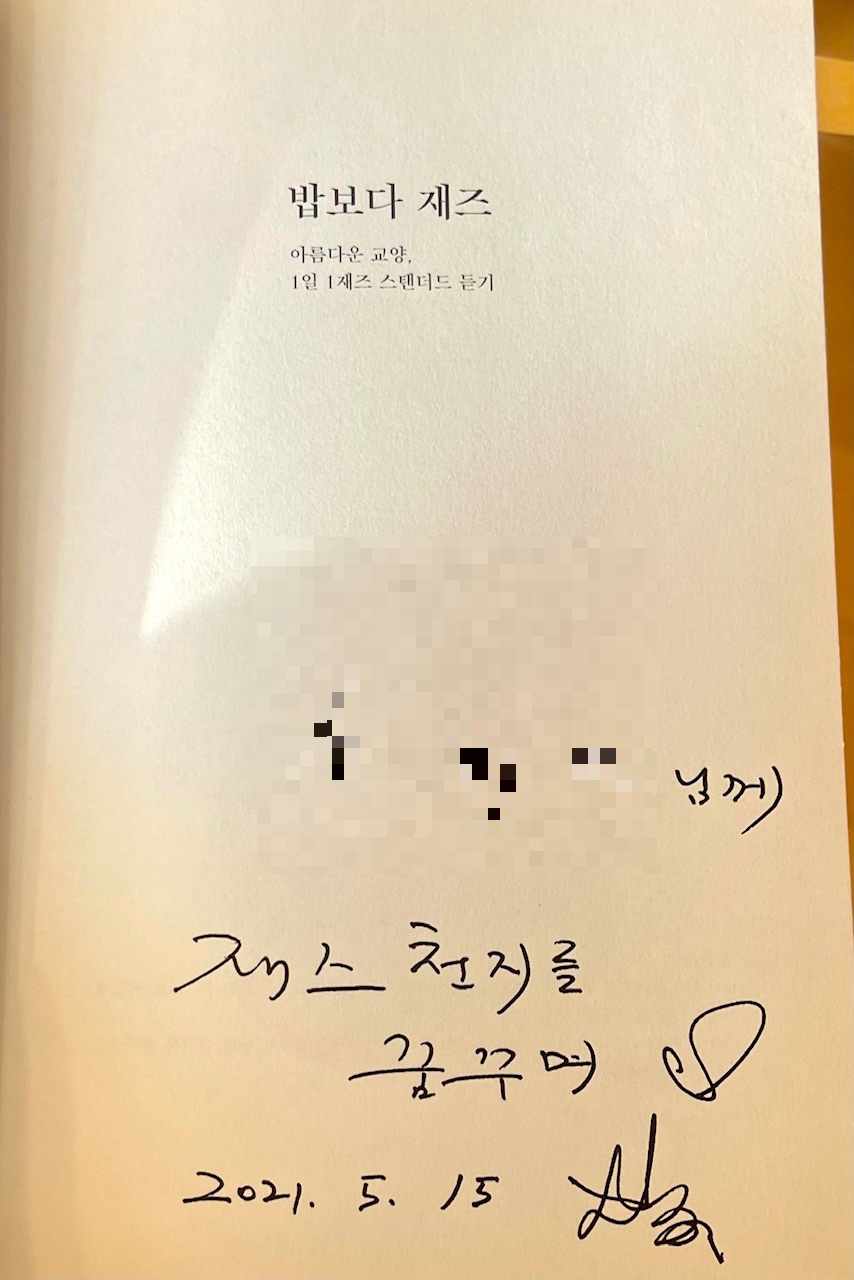 밥보다 재즈
아름다운 교양,
1일 1재즈 스탠더드 듣기
님께
재즈 천지를
꿈꾸며
2021. 5. 15